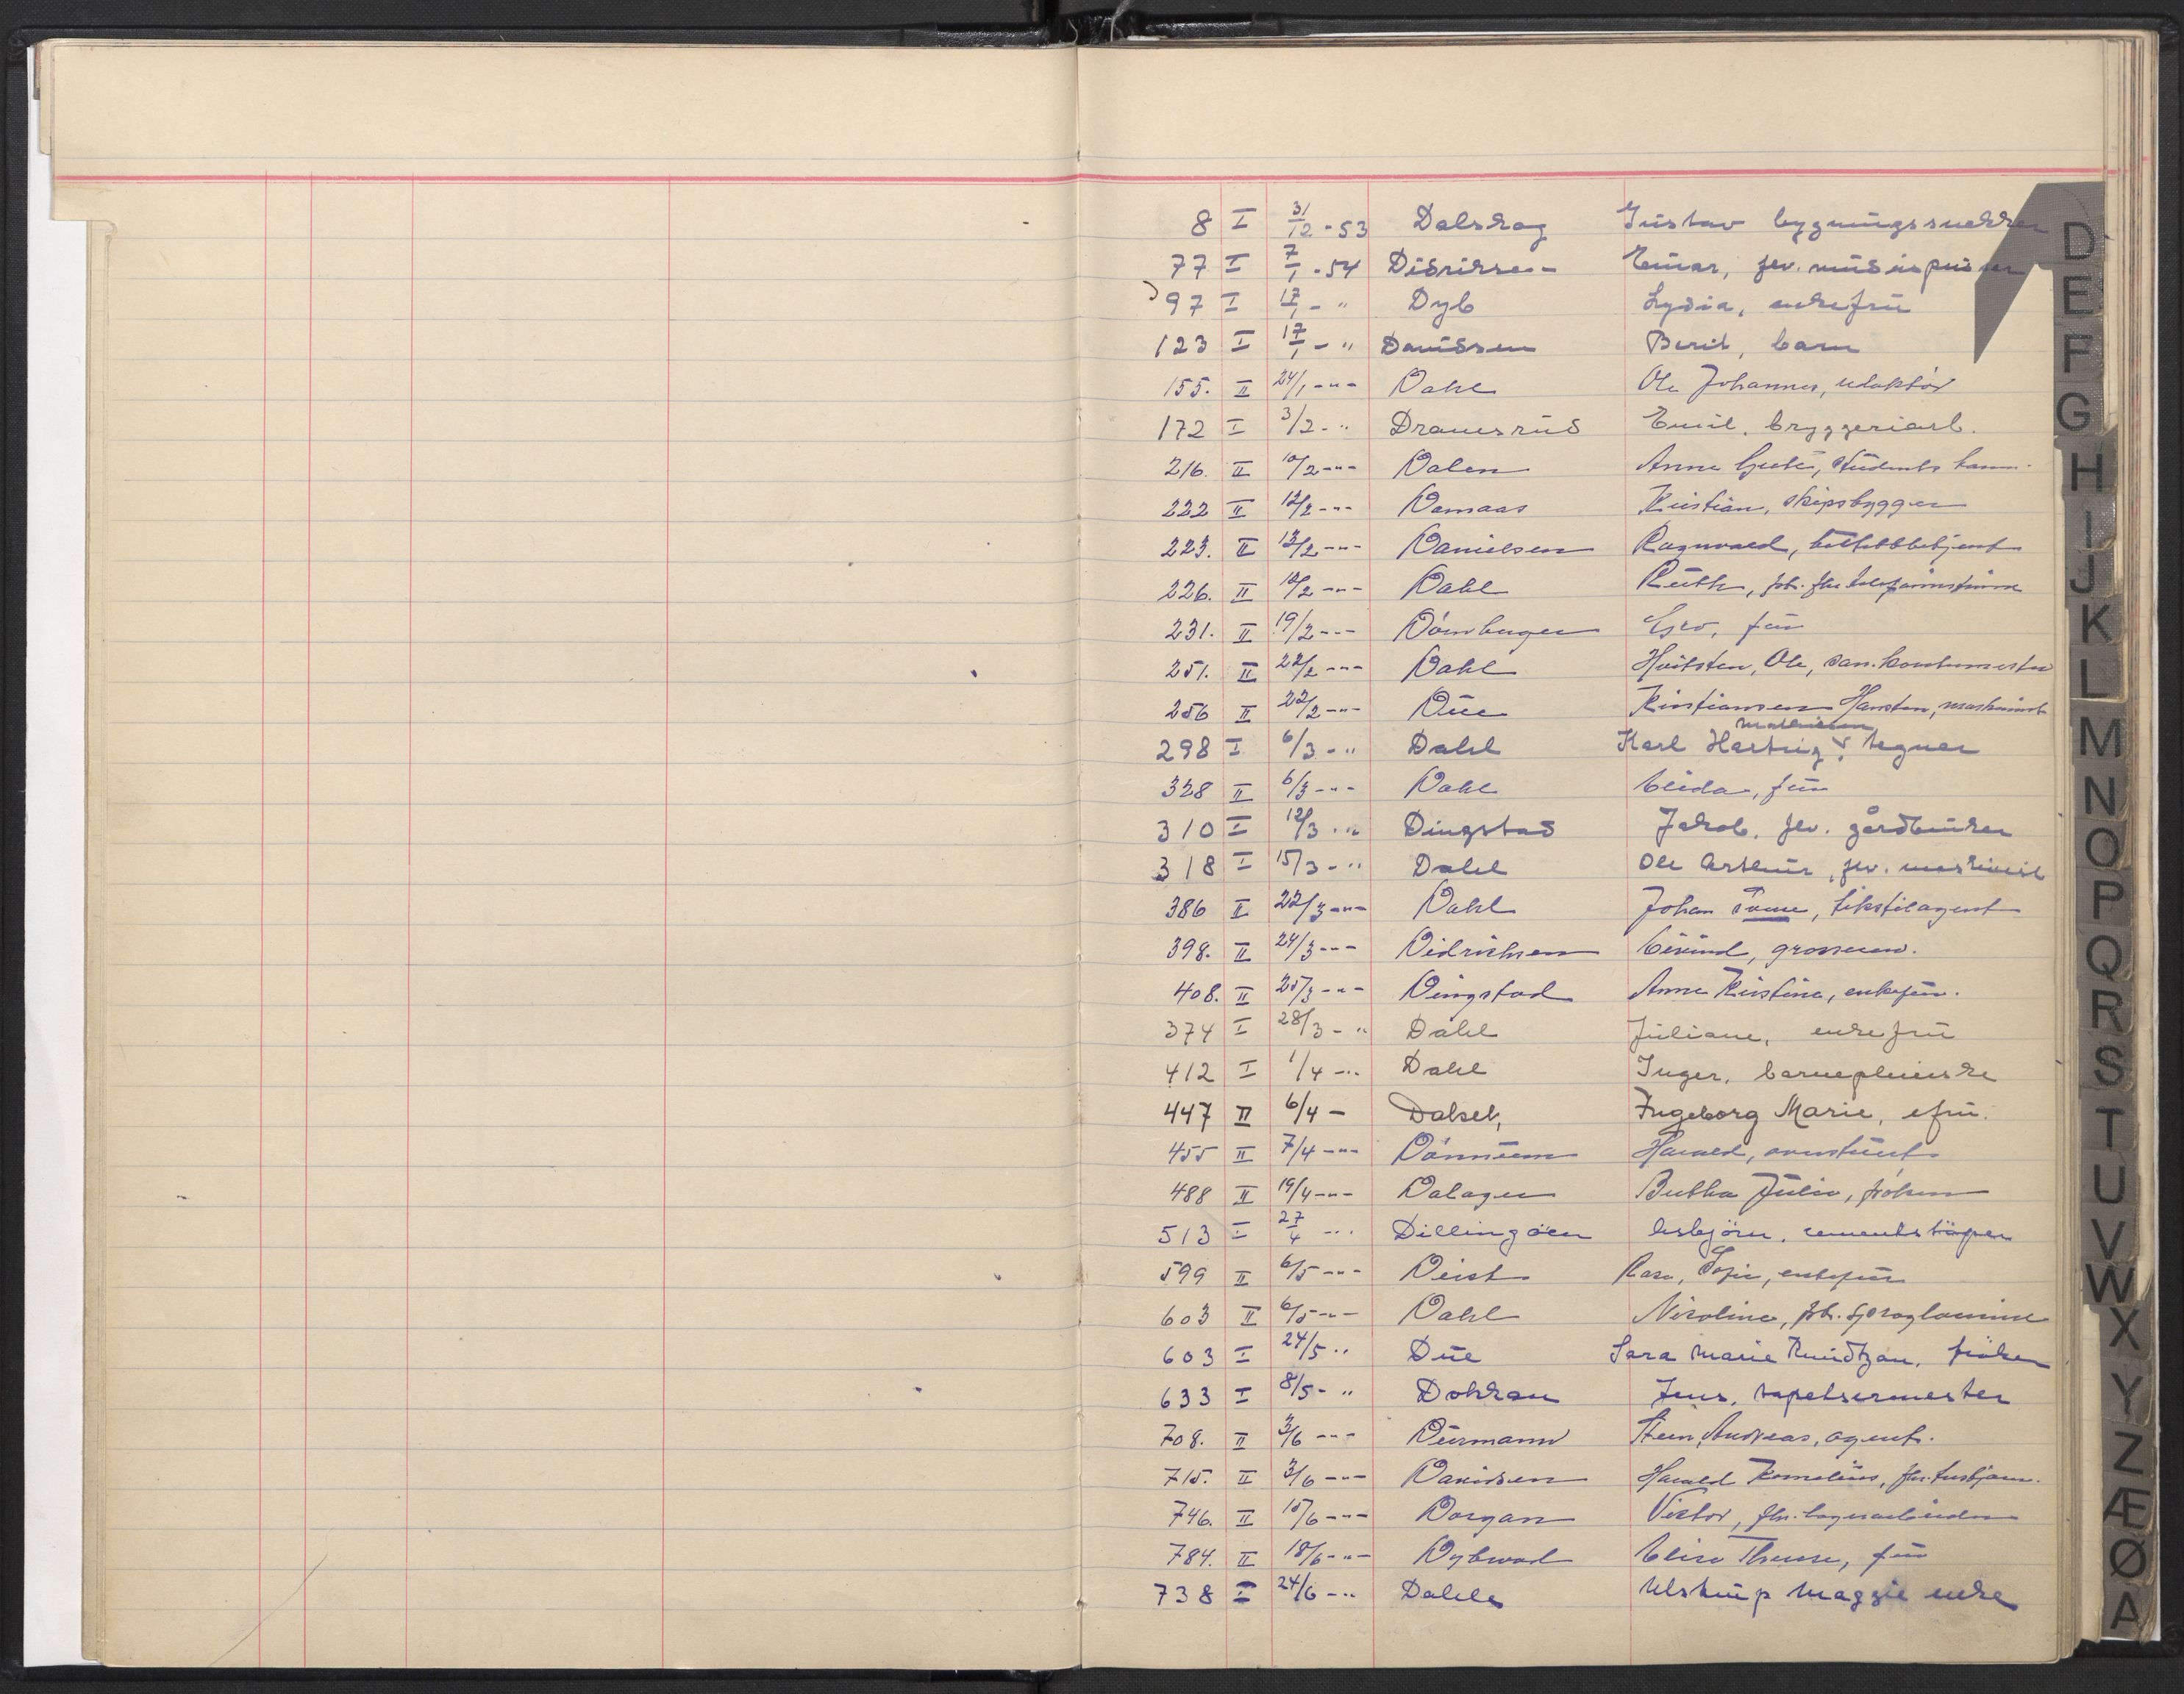 8 I 31/12 - 53 Dalskog Gustav bygningssnekker
77 I 7/1 - 54 Didriksen Einar, fev.
97 I 17/1 - " Dyb Lydia, enkefrü
123 I 17/1 - " Davidsen Berit, barn
155. II 24/1 - " - Dahl Ole Johannes, redaktör
172 I 3/2 - " Dramsrud Emil, bryggeriarb.
216. II 10/2 - " - Dalen Anne Grete, students
222 II 12/2 - " - Damaas Kristian, skipsbygger
223. II 12/2 - " - Danielsen Ragnvald, toltebbetjent
226. II 12/2 - " - Dahl Ruth,
231. II 19/2 - " - Dörnberger früe
251. II 22/2 - " - Dahl Hvitsten, Ole,
256 II 22/2 - " - Düe Kristiansen Hansten, maskinist
298 I 6/3 - " Dahl Karl Hartvig Mathisen tegner
328 II 6/3 - " - Dahl frü
310 I 12/3 - " Dingstad Jakob, fev. gårdbruker
318 I 15/3 - " Dahl Ole Arthur, fev. maskinist
386 II 22/3 - " - Dahl Johan tekstilagent
398. II 24/3 - " - Didrichsen Eivind, grosserer.
408. II 25/3 - " - Dingstad Anne Kristine, enkefrü.
374 I 28/3 - " Dahl Juliane, enkefrü
412 I 1/4 - " Dahl Inger, barnepleierske
447 II 6/4 - Dalset, Ingeborg Marie, efrü.
455 II 7/4 - " - Dönnüm Harald,
488 II 19/4 - " - Dalager Bertha Julie, fröken
513 I 27/4 - " Dillingöen Asbjörn, sementstöper
599 II 6/5 - " - Deist Rasa, Sofie, enkefrü
603 II 6/5 - " - Dahl Nikoline,
603 I 24/5 - " Düe Sara Marie Knudtzon, fröken
633 I 8/5 - " Dokkan Jens, tapetsermester
708. II 3/6 - " - Dürmann Andreas, agent.
715. II 3/6 - " - Davidsen Harald Kornelius,
746. II 15/6 - " - Dorgan Victor, fhv. lagerarbeider
784. II 18/6 - " - Dybwad Elise frü
738 I 24/6 - " Dahle Ulstrup Maggie enke
D
E
F
G
H
I
J
K
L
M
N
O
P
Q
R
S
T
U
V
W
X
Y
Z
Æ
Ø
A